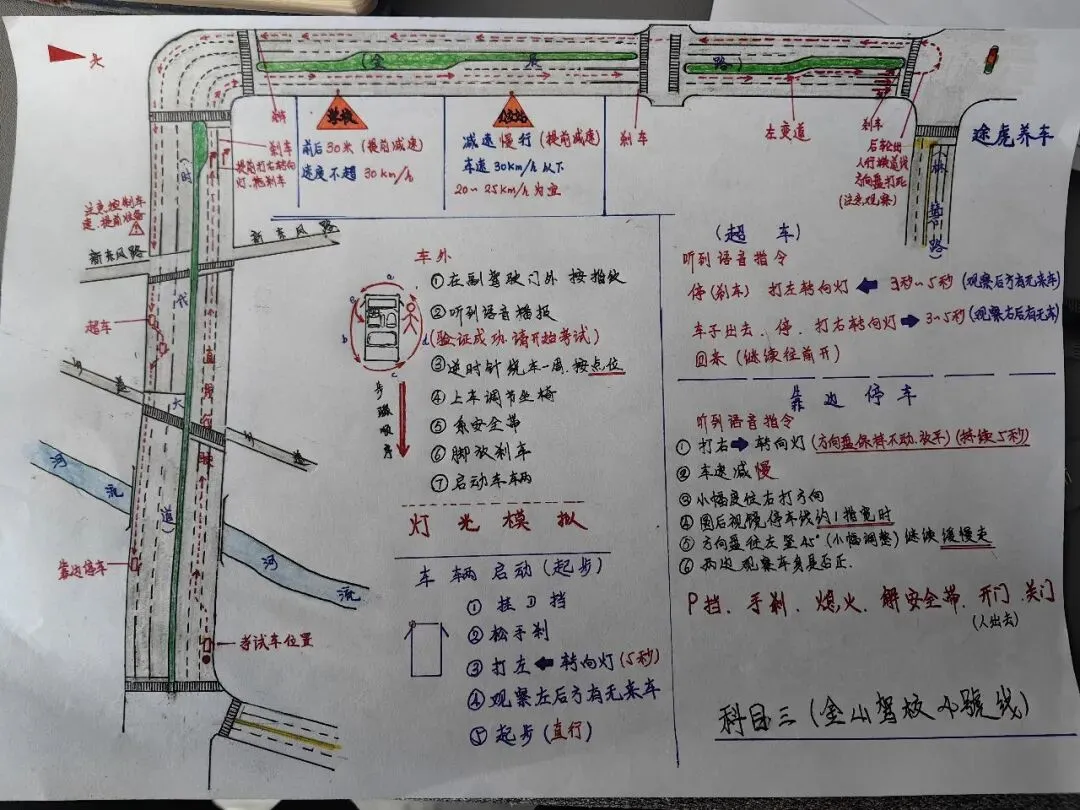 北
金
泉
路
刹车
刹车
提前打右转向
灯、抱刹车
学校
前后30米(提前减速)
速度不超 30km/h
公交站
减速慢行(提前减速)
车速 30km/h 以下
20~25km/h为宜
刹车
左变道
刹车
后轮出
人行横道线
方向盘打死
(注意观察)
途虎养车
路)
注意控制车
速、提前准备
(时
代
大
道)
新东风路
新东风路
超车
直行
河
流
河
流
靠边停车
考试车位置
车外
①在副驾驶门外 按指纹
②听到语音播报
(验证成功.请开始考试)
③逆时针绕车一周.按点位
④上车调节坐椅
⑤系安全带
⑥脚放刹车
⑦启动车车辆
a
b
c
d
步骤顺序
灯光模拟
车辆启动(起步)
①挂D挡
②松手刹
③打左⬅转向灯(5秒)
④观察左后方有无来车
⑤起步(直行)
(超车)
听到语音指令
停(刹车) 打左转向灯 ⬅ 3秒~5秒(观察后方有无来车)
车子出去、停、打右转向灯➡3~5秒(观察右后有无车)
回来(继续往前开)
靠边停车
听到语音指令
①打右➡转向灯(方向盘保持不动.放开)(持续5秒)
②车速减慢
③小幅度往右打方向
④图后视镜停车线约1指宽时
⑤方向盘往左竖45°(小幅调整)继续缓慢走
⑥两边观察车身是否正.
P挡、手刹、熄火、解安全带、开门、关门
(人出去)
科目三(金山驾校小號线)